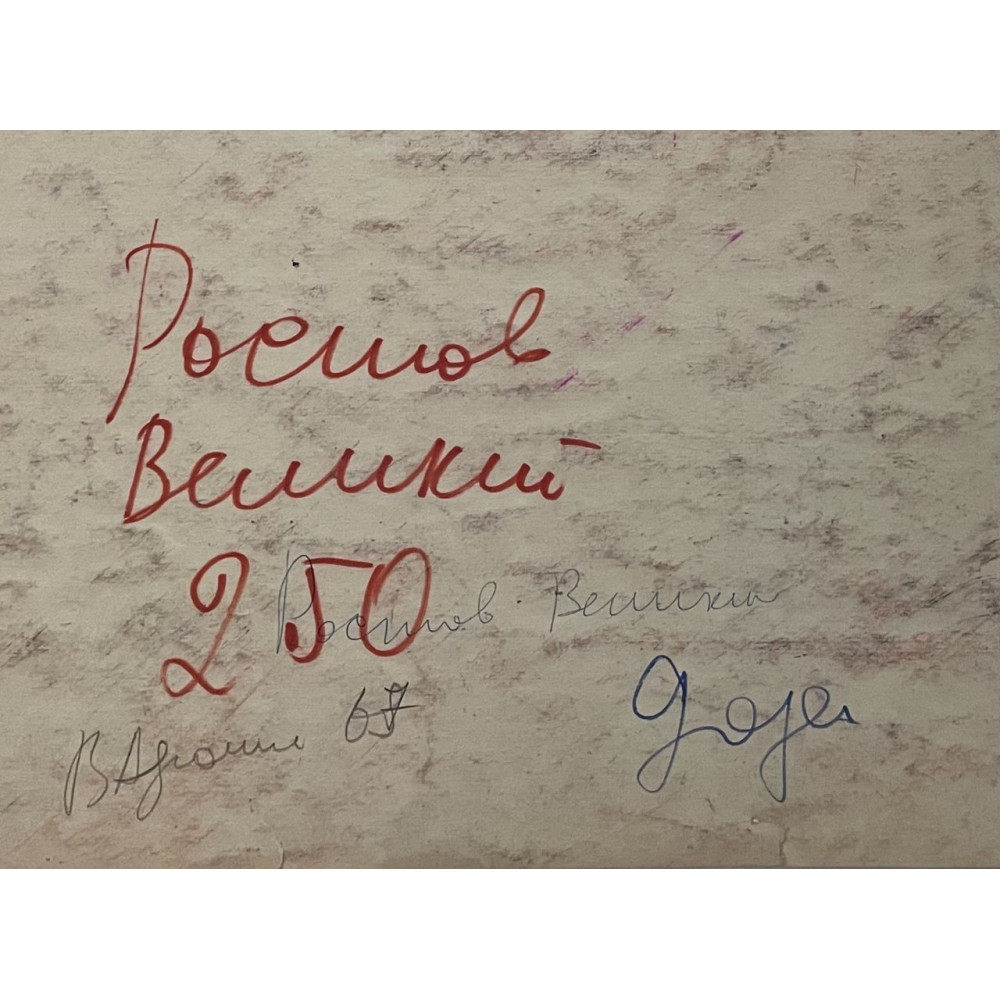 Ростов
Великий
250
Ростов. Великий
67